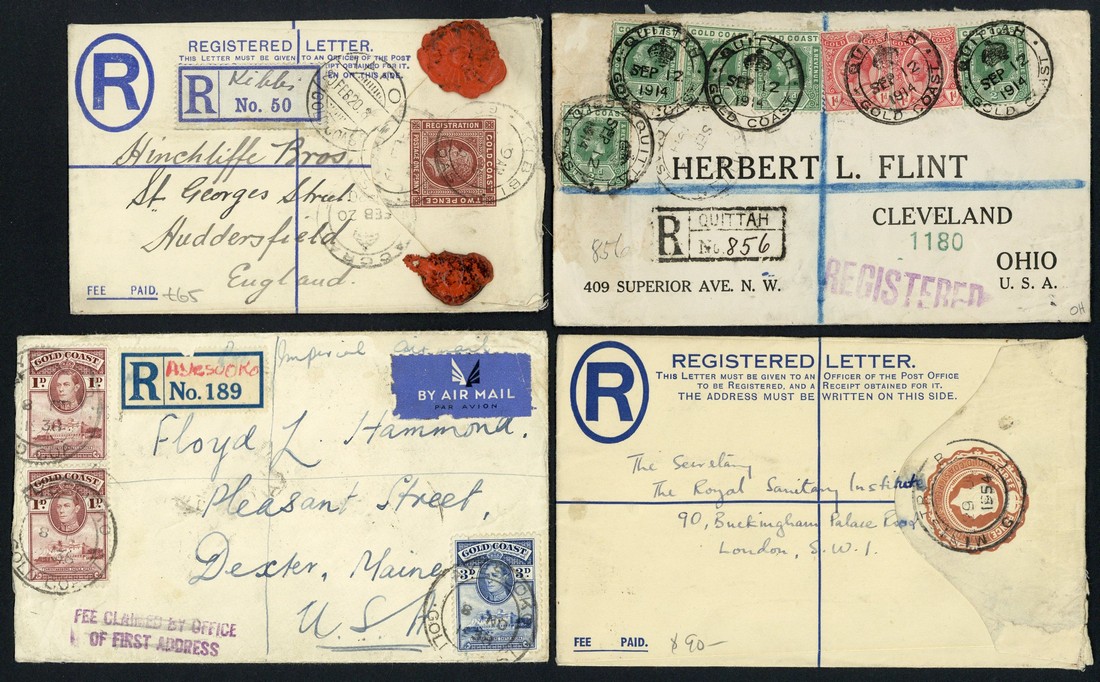 REGISTERED LETTER.
THIS LETTER MUST BE GIVEN TO AN OFFICER OF THE POST
R
Kibbi
No. 50
FEB 20
REGISTRATION
GOLD COAST
POSTAGE ONE PENNY
TWO PENCE
Hinchliffe Bros.
St. Georges Street
Huddersfield
England.
FEE PAID.
£65
GOLD COAST
QUITTAH
SEP 12
1914
GOLD COAST
QUITTAH
SEP 12
1914
GOLD COAST
QUITTAH
SEP 12
1914
GOLD COAST
QUITTAH
SEP 12
1914
GOLD COAST
HERBERT L. FLINT
CLEVELAND
1180
OHIO
U. S. A.
409 SUPERIOR AVE. N. W.
856
R
QUITTAH
No. 856
REGISTERED
OH
GOLD COAST
1D 1D
GOLD COAST
1D 1D
R
No. 189
Imperial Airmail
BY AIR MAIL
PAR AVION
Floyd L. Hammond,
Pleasant Street,
Dexter, Maine
U.S.A
GOLD COAST
3D 3D
FEE CLAIMED BY OFFICE
OF FIRST ADDRESS
R
REGISTERED LETTER.
THIS LETTER MUST BE GIVEN TO AN OFFICER OF THE POST OFFICE
TO BE REGISTERED, AND A RECEIPT OBTAINED FOR IT.
THE ADDRESS MUST BE WRITTEN ON THIS SIDE.
The Secretary
The Royal Sanitary Institute
90, Buckingham Palace Road
London, S.W.1.
FEE PAID.
$90-